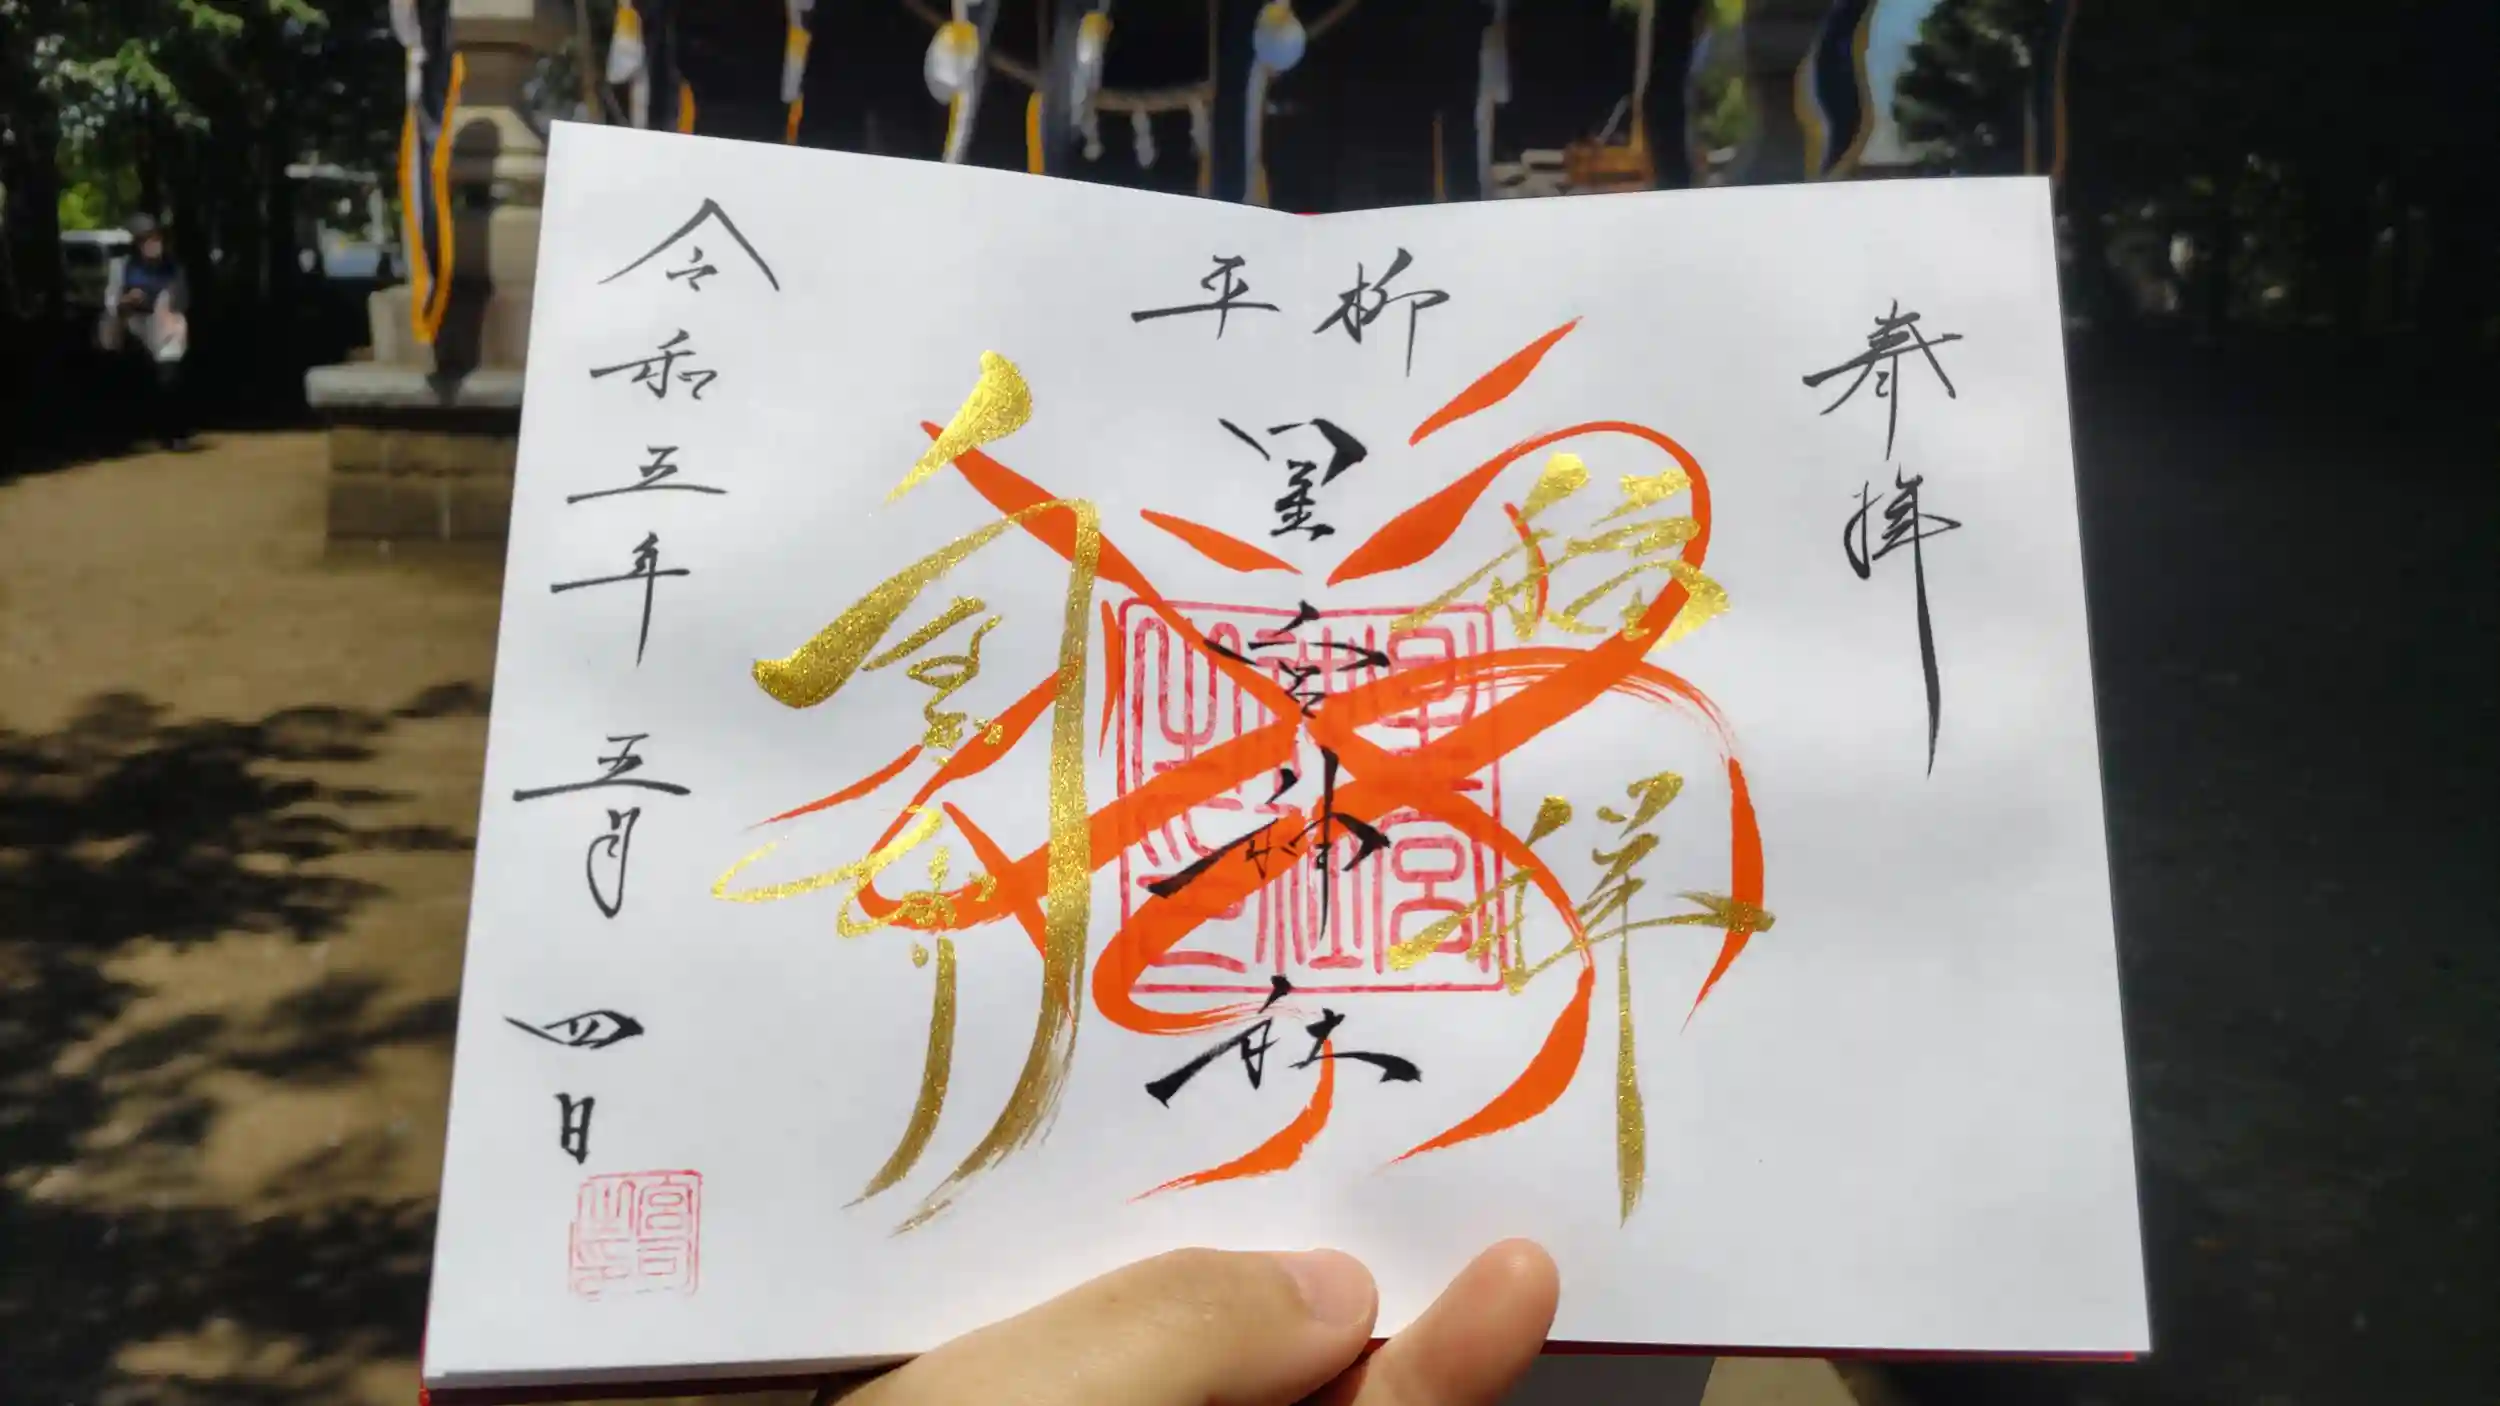 奉拝
平柳
星宮神社
星宮神社之印
令和五年五月四日
宮司之印